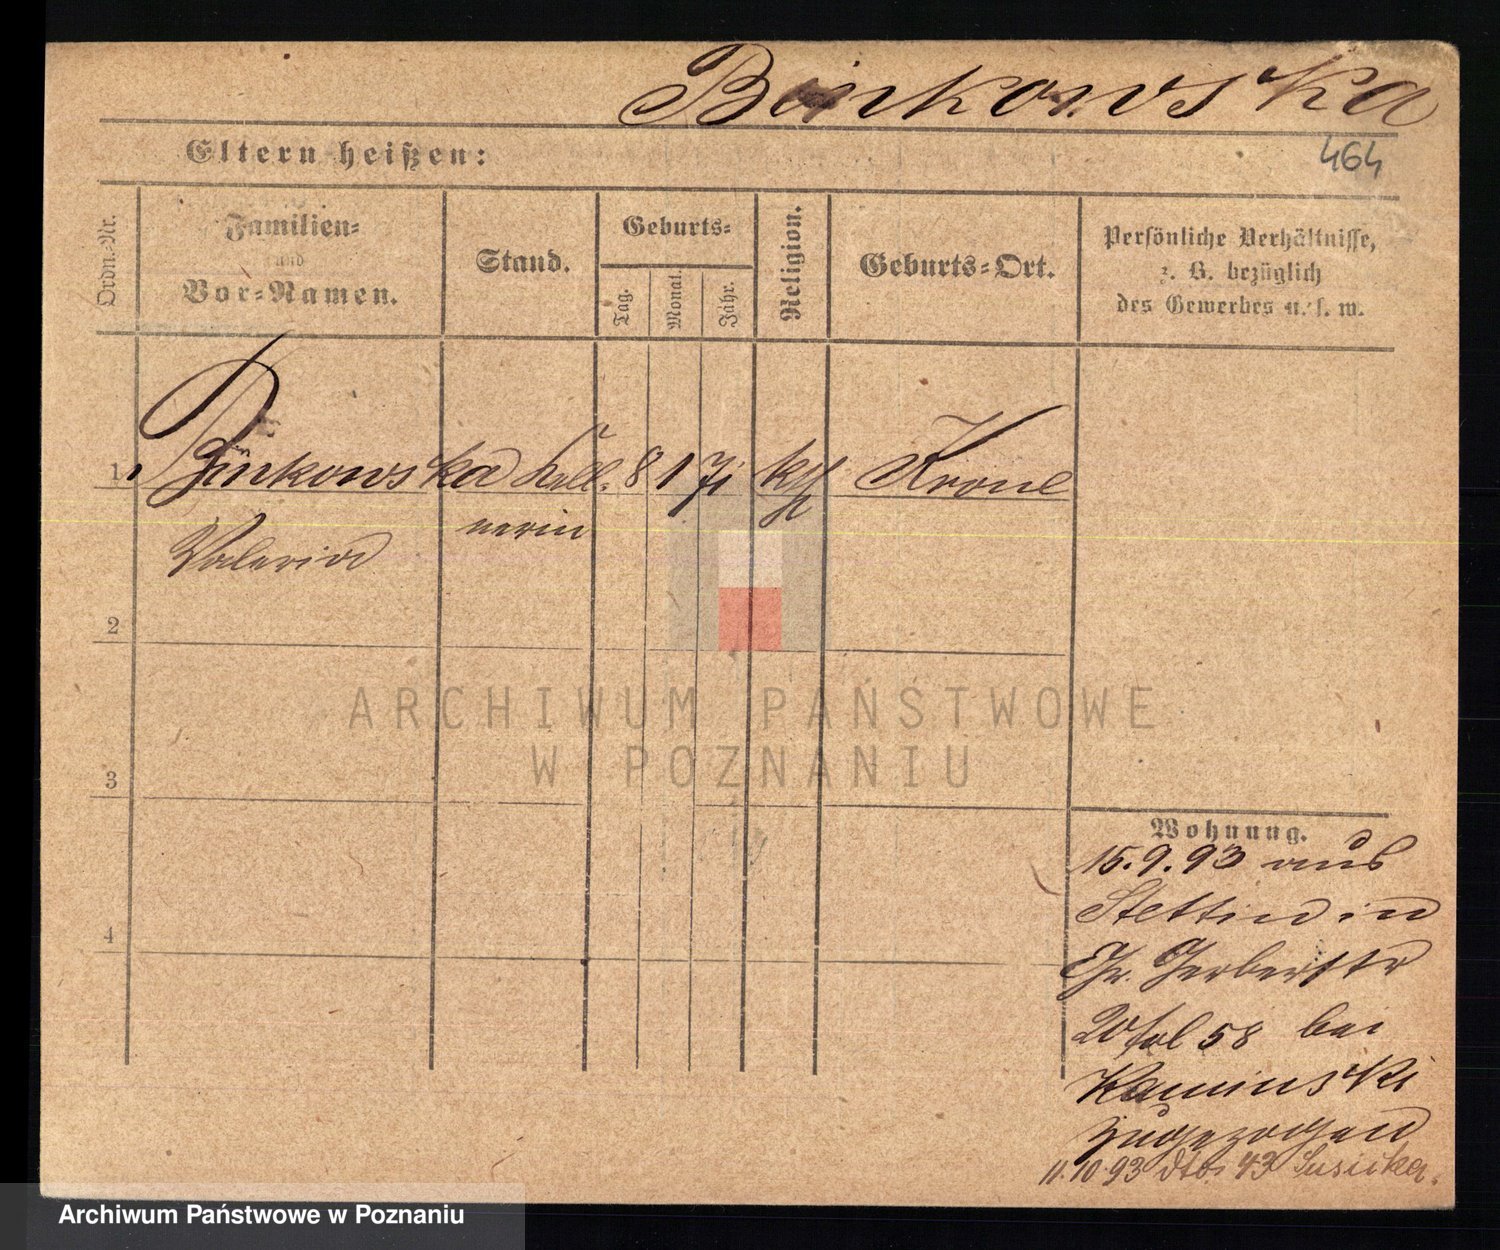 Binkowska
464
Eltern heißen:
Ordn.-Nr.
Familien-
und
Vor-Namen.
Stand.
Geburts-
Tag.
Monat.
Jahr.
Religion.
Geburts-Ort.
Persönliche Verhältnisse,
z. B. bezüglich
des Gewerbes u. s. w.
1 Binkowska Kell- 8 1 71 kth Krone
nerin
Valeria
2
3
4
Wohnung.
15.9.93 aus
Stettin in
Gr. Gerberstr
20 fol 58 bei
Kaminski
zugezogen
11.10.93 dto. 43
ARCHIWUM PAŃSTWOWE
W POZNANIU
Archiwum Państwowe w Poznaniu